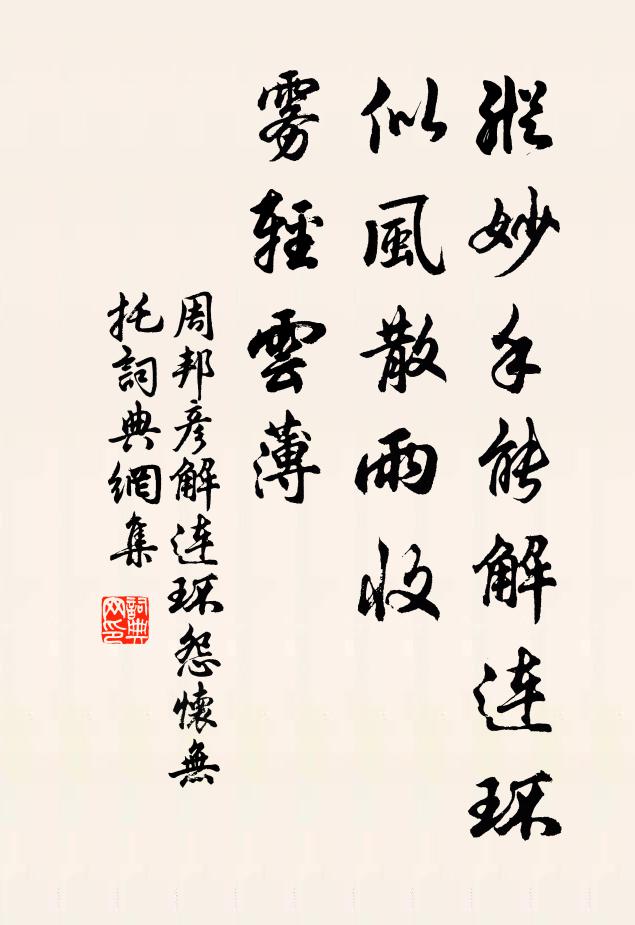 縱妙手能解連环
似風散雨收
雾輕雲薄
周邦彦解連环怨懷無
托詞典網集
詞典网印